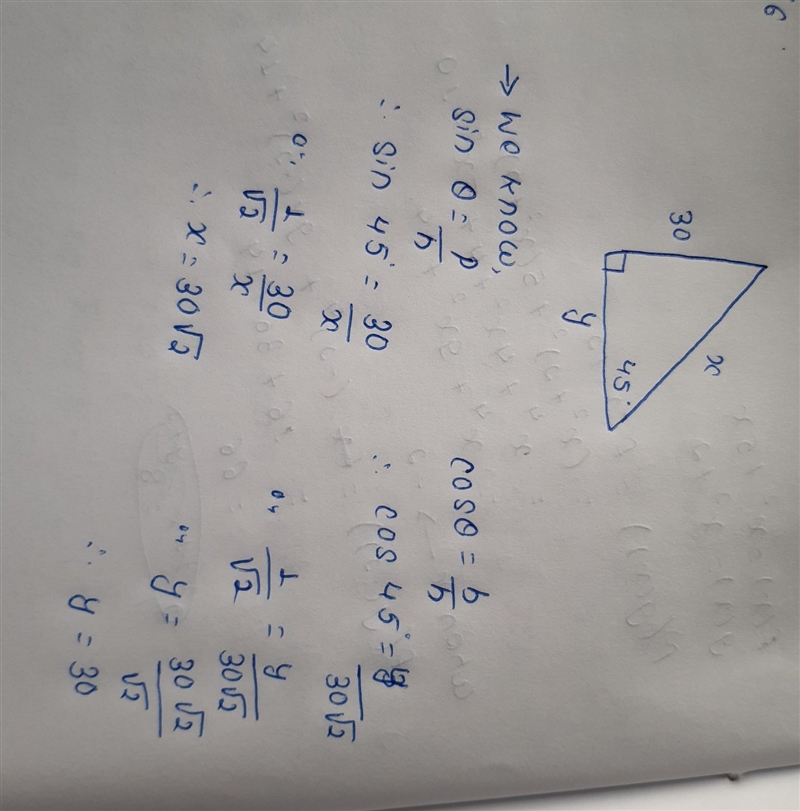 6.
30
x
45°
y
→ We know,
sin θ = p/h
∴ sin 45° = 30/x
or, 1/√2 = 30/x
∴ x = 30√2
cosθ = b/h
∴ cos 45° = y/30√2
or, 1/√2 = y/30√2
or, y = 30√2/√2
∴ y = 30